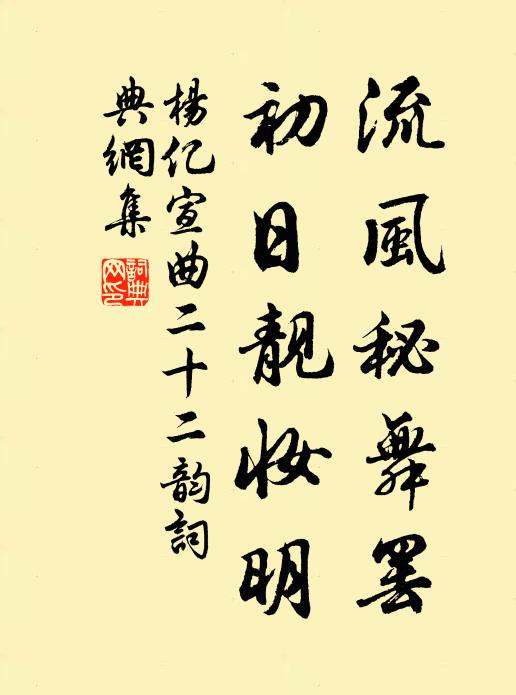 流風秘舞罷
初日靚妝明
楊亿宣曲二十二韵詞
典網集
詞典
网印